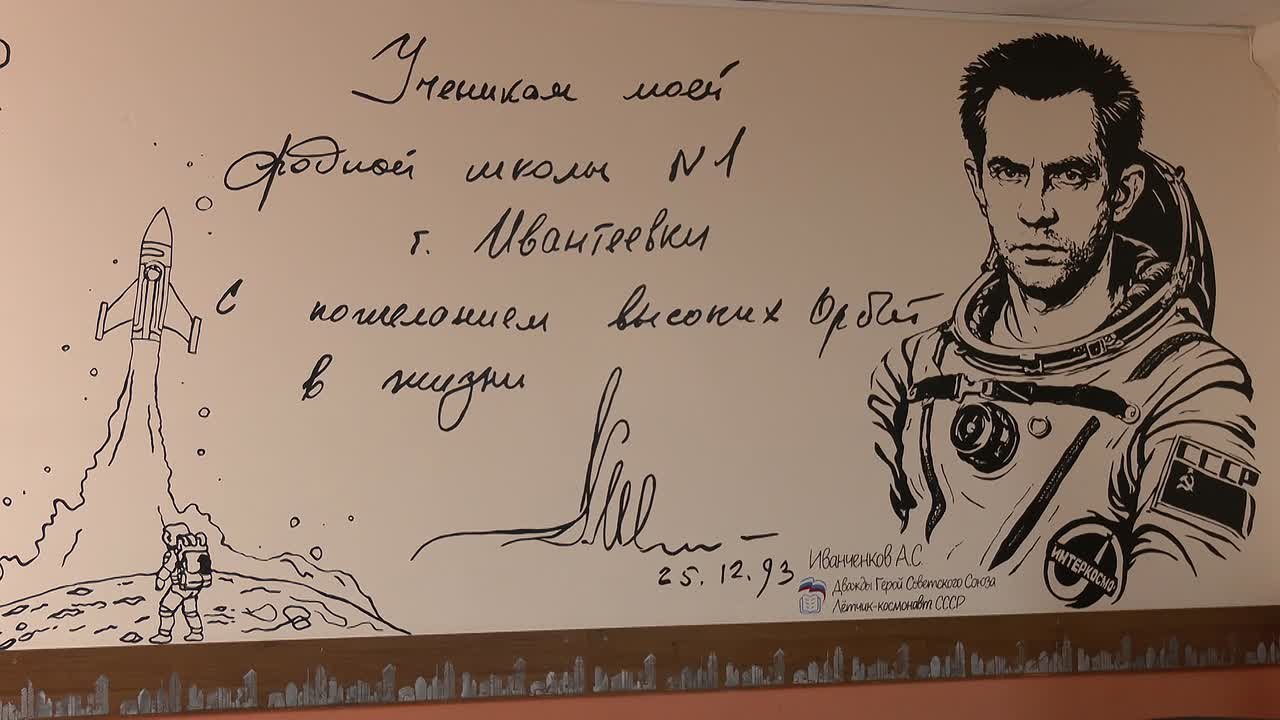 Ученикам моей
родной школы N1
г. Ивантеевки
С пожеланием высоких Орбит
в жизни
25.12.93
Иванченков А.С
Дважды Герой Советского Союза
Лётчик-космонавт СССР
СССР
ИНТЕРКОСМОС